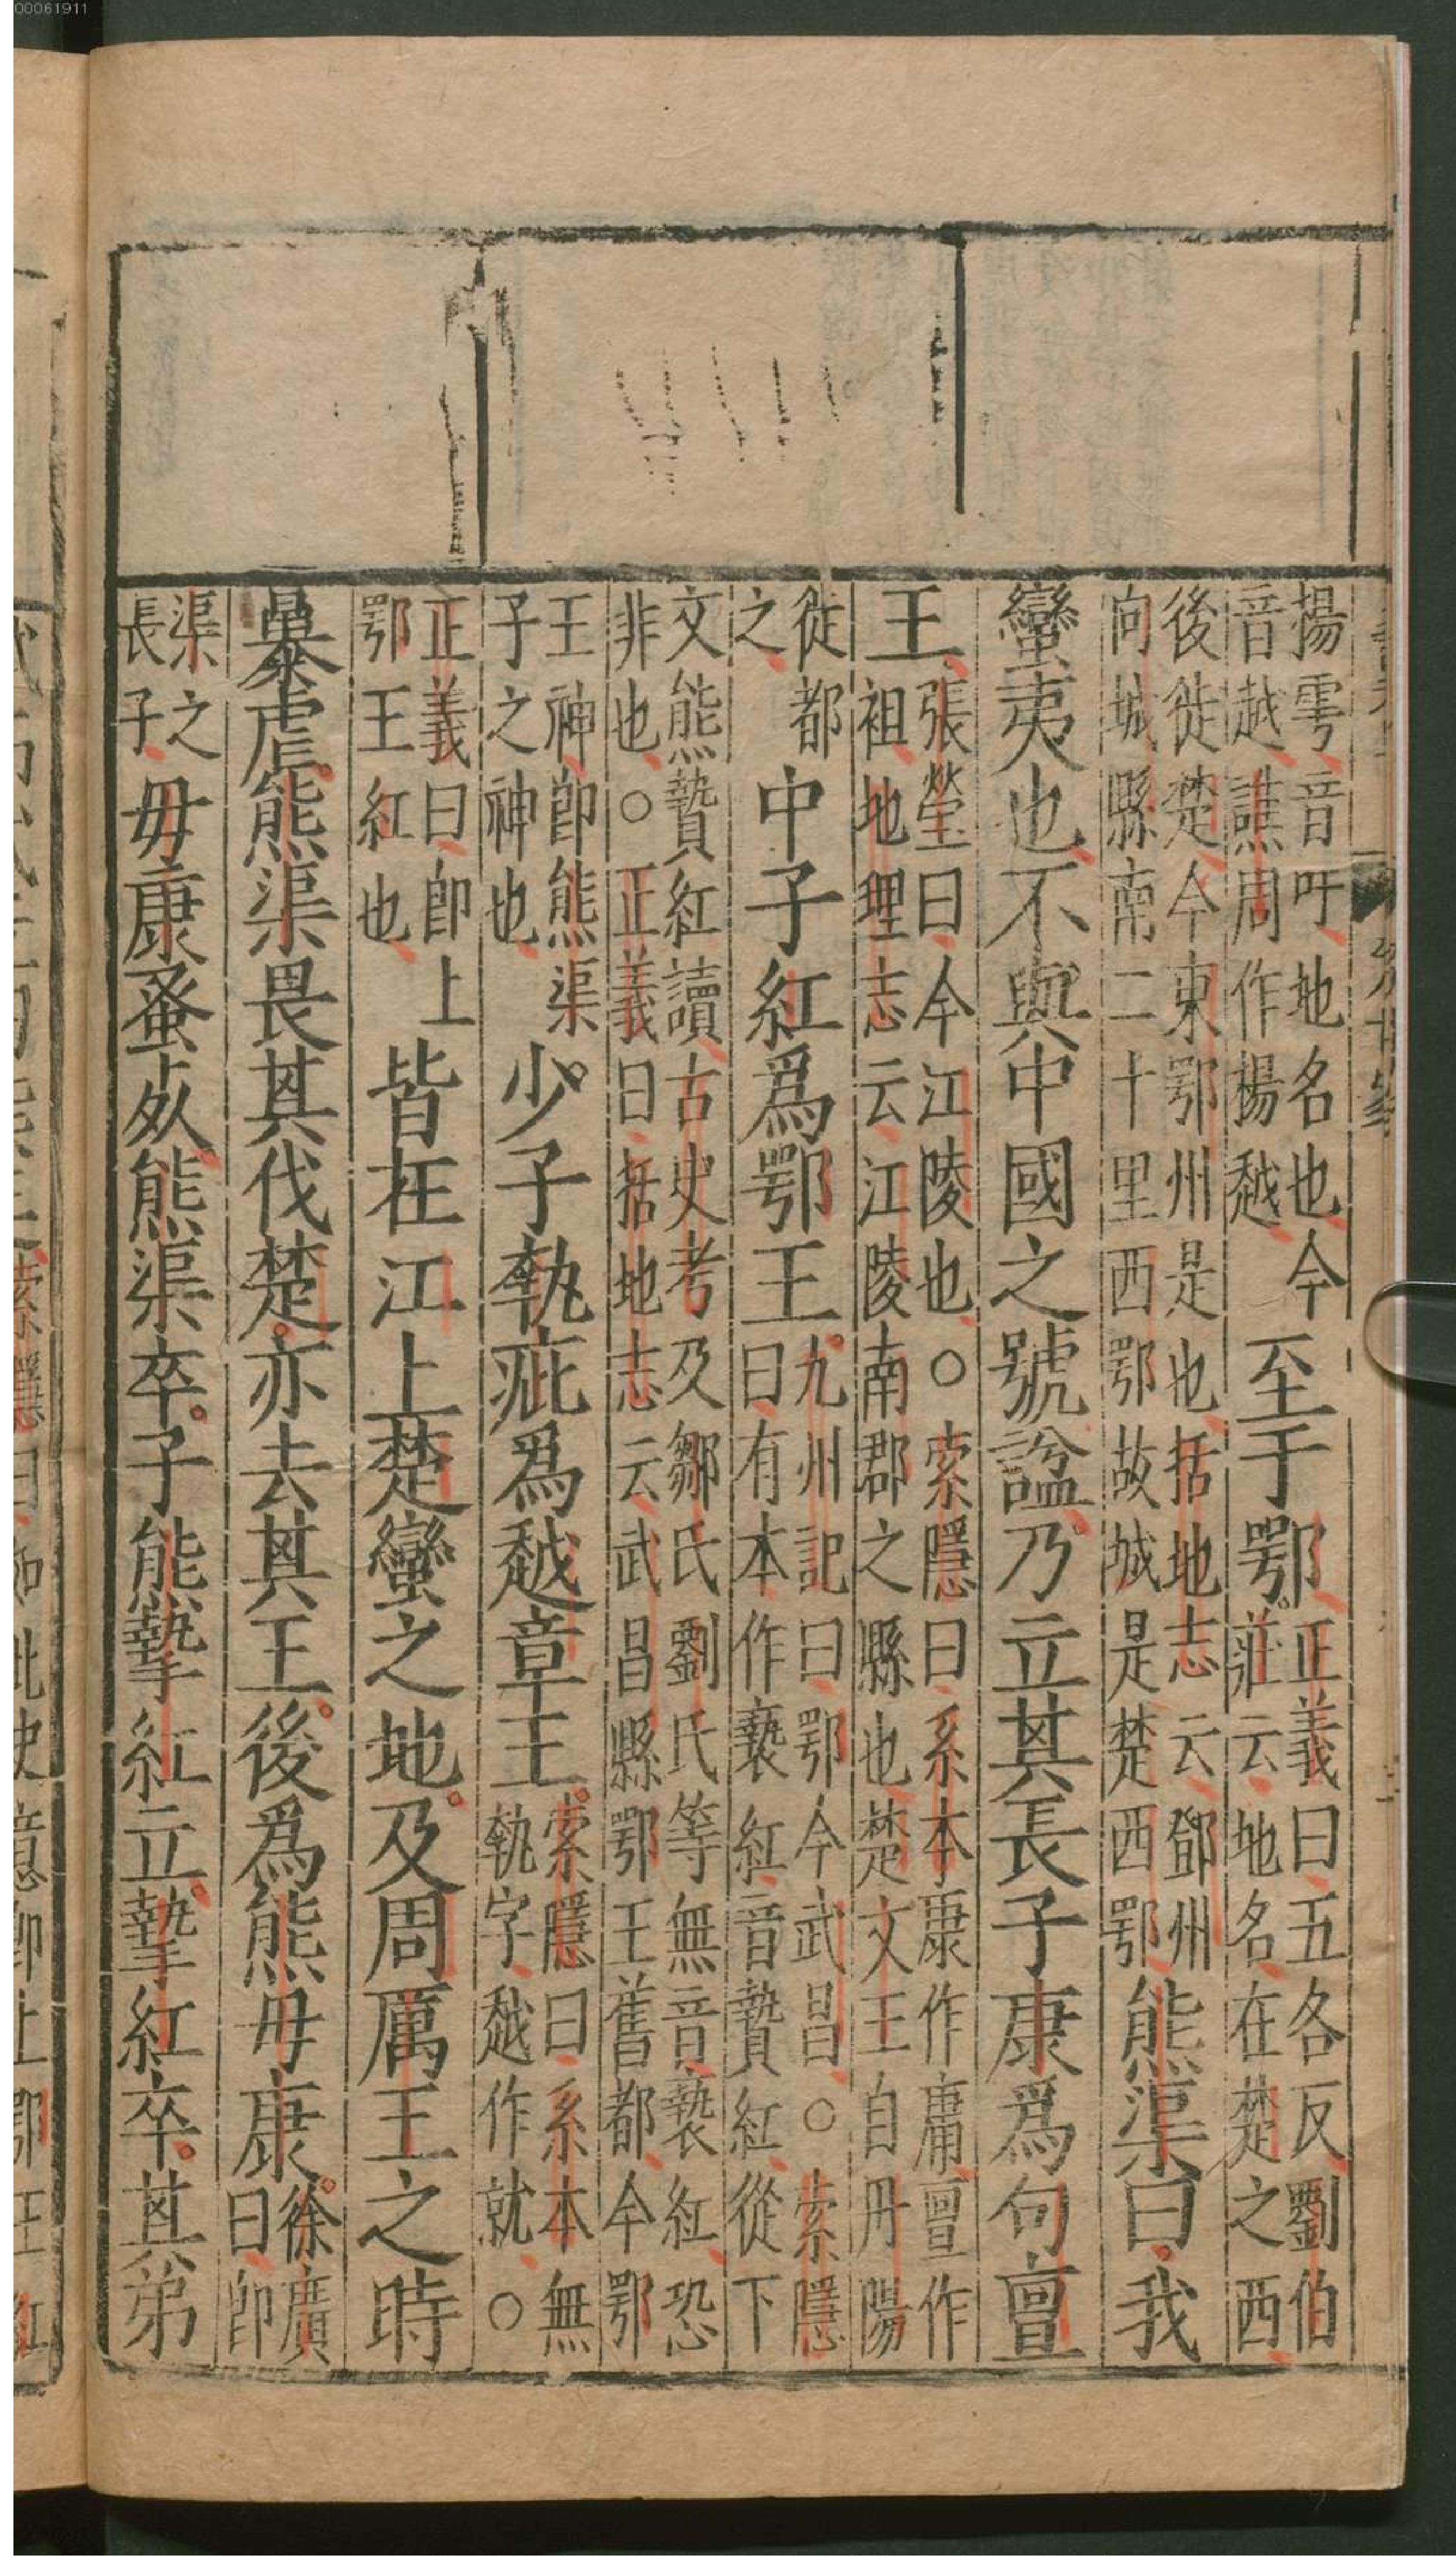 00061911
揚雩音吁地名也今
音越譙周作楊越
至于鄂
正義曰五各反劉伯
莊云地名在楚之西
後徙楚今東鄂州是也括地志云鄧州
向城縣南二十里西鄂故城是楚西鄂
熊渠曰我
蠻夷也不與中國之號諡乃立其長子康爲句亶
王
張瑩曰今江陵也○索隱曰系本康作庸亶作
袓地理志云江陵南郡之縣也楚文王自丹陽
徙都
之
中子紅爲鄂王
九州記曰鄂今武昌○索隱
曰有本作褻紅音贄紅從下
文熊贄紅讀古史考及鄒氏劉氏等無音褻紅恐
非也○正義曰括地志云武昌縣鄂王舊都今鄂
王神卽熊渠
子之神也
少子執疵爲越章王
索隱曰系本無
執字越作就○
正義曰卽上
鄂王紅也
皆在江上楚蠻之地及周厲王之時
暴虐熊渠畏其伐楚亦去其王後爲熊毋康
徐廣
曰卽
渠之
長子
毋康蚤死熊渠卒子熊摯紅立摯紅卒其弟